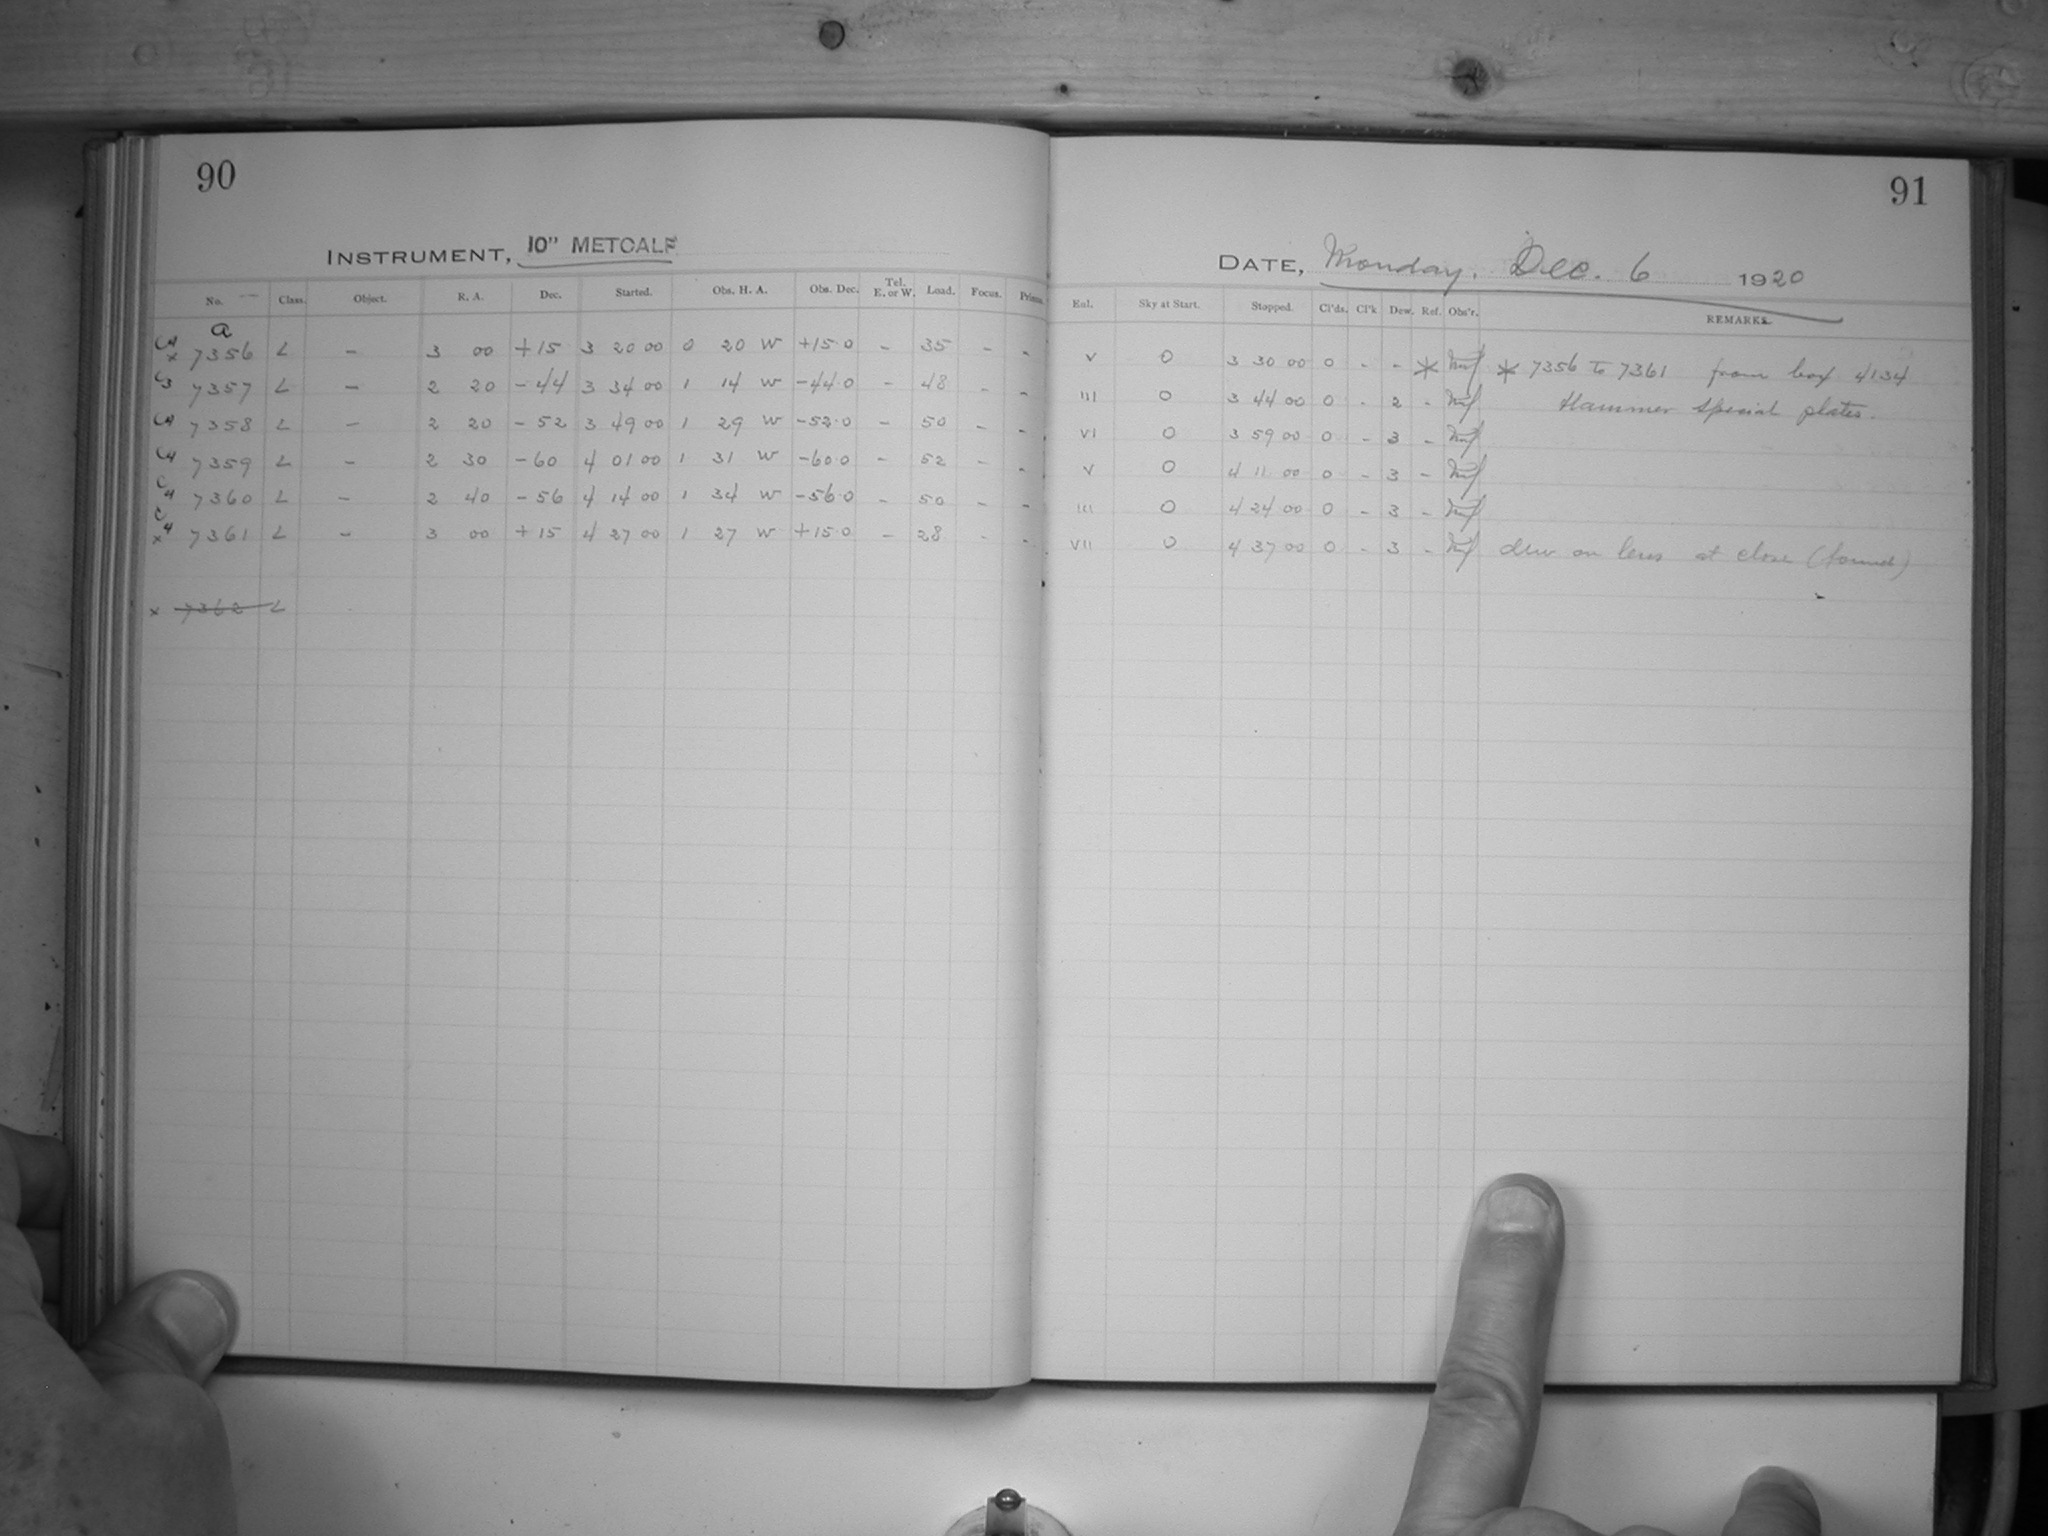 90
INSTRUMENT, 10" METCALF
No. Class. Object. R. A. Dec. Started. Obs. H. A. Obs. Dec. Tel. E. or W. Load. Focus.
a
C4 x 7356 L – 3 00 +15 3 20 00 0 20 W +15.0 – 35 - -
C3 7357 L – 2 20 -44 3 34 00 1 14 W -44.0 – 48 - -
C4 7358 L – 2 20 -52 3 49 00 1 29 W -52.0 – 50 - -
C4 7359 L – 2 30 -60 4 01 00 1 31 W -60.0 – 52 - -
C4 7360 L – 2 40 -56 4 14 00 1 34 W -56.0 – 50 - -
C4 x 7361 L – 3 00 +15 4 27 00 1 27 W +15.0 – 28 - -
x 7362 L
91
DATE, Monday. Dec. 6 1920
Sky at Start. Stopped. Cl'ds. Cl'k Dew. Ref. Obs'r. REMARKS.
V 0 3 30 00 0 - - * * 7356 to 7361 from box 4134
III 0 3 44 00 0 - 2 - Hammer Special plates.
VI 0 3 59 00 0 - 3 -
V 0 4 11 00 0 - 3 -
III 0 4 24 00 0 - 3 -
VII 0 4 37 00 0 - 3 - dew on lens at close (found)